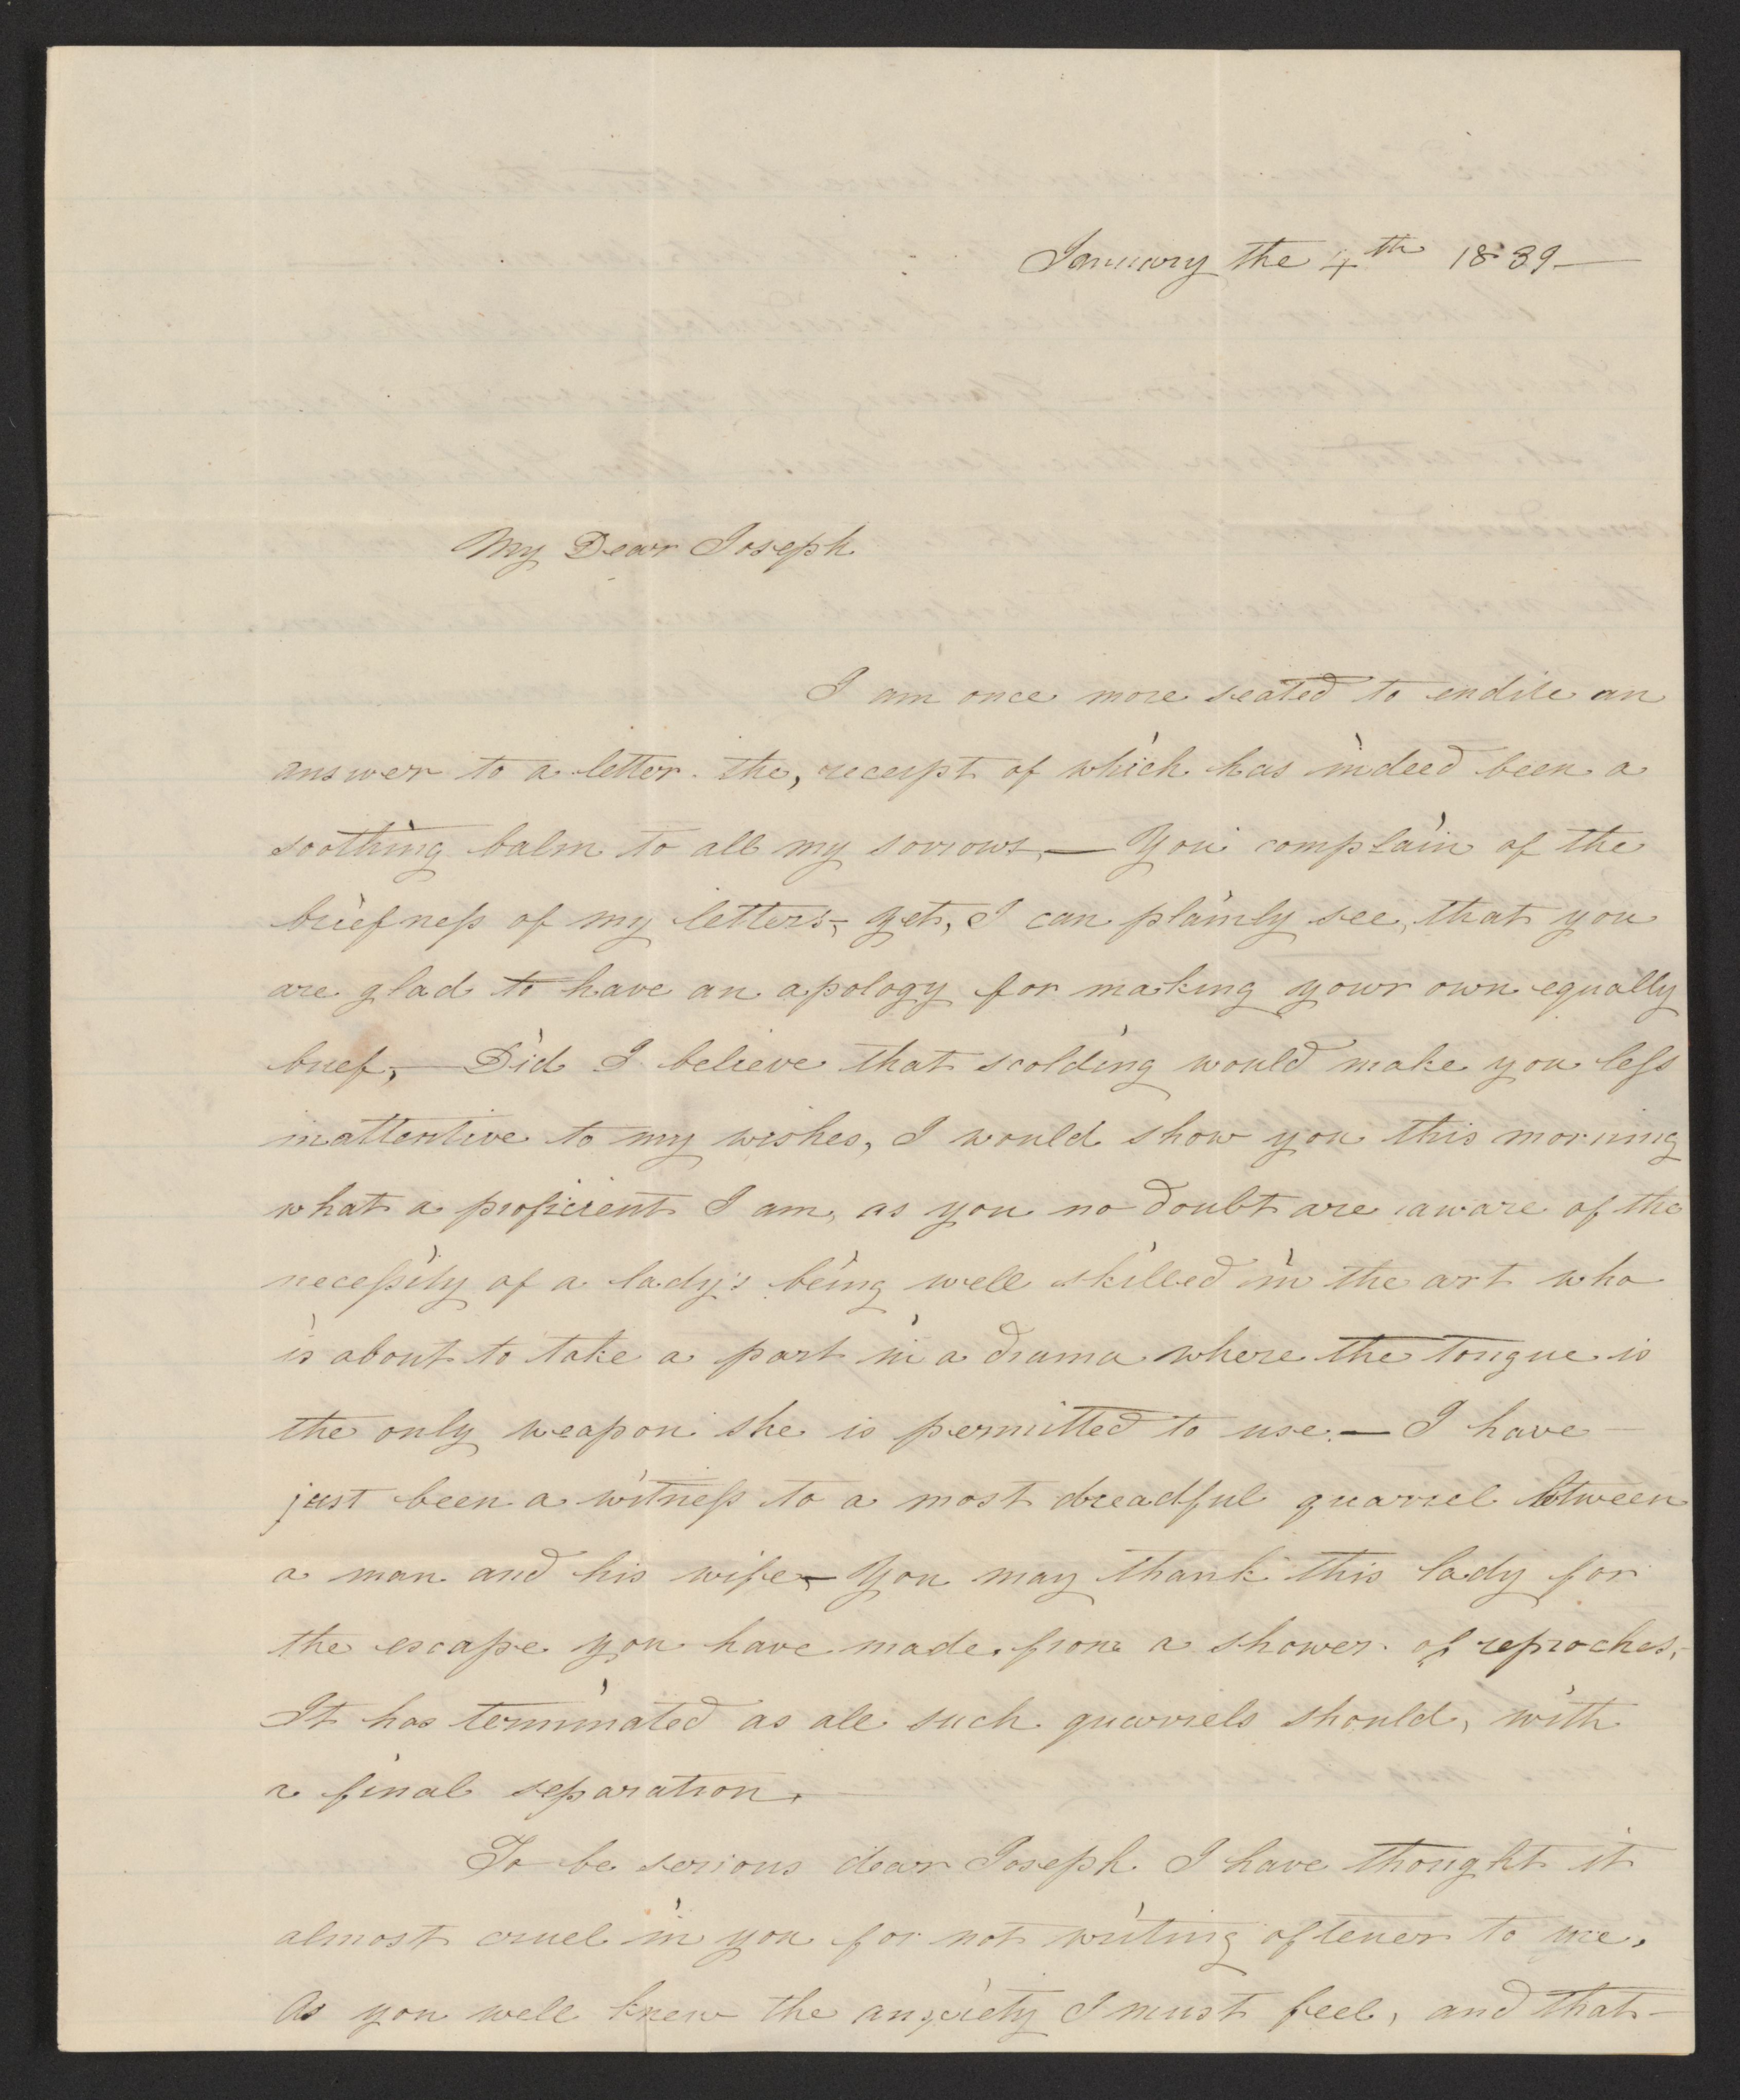 January the 4th 1839—
My Dear Joseph
I am once more seated to endite an
answer to a letter. the, receipt of which has indeed been a
soothing balm to all my sorrows,— You complain of the
briefness of my letters,- yet, I can plainly see, that you
are glad to have an apology for making your own equally
brief,— Did I believe that scolding would make you less
inattentive to my wishes, I would show you this morning
what a proficient I am, as you no doubt are aware of the
necessity of a lady's being well skilled in the art who
is about to take a part in a drama where the tongue is
the only weapon she is permitted to use.— I have—
just been a witness to a most dreadful quarrel between
a man and his wife,— You may thank this lady for
the escape you have made from a shower of reproches,
It has terminated as all such quarrels should, with
a final separation.—
To be serious dear Joseph I have thought it
almost cruel in you for not writing oftener to me,
As you well knew the anxiety I must feel, and that—